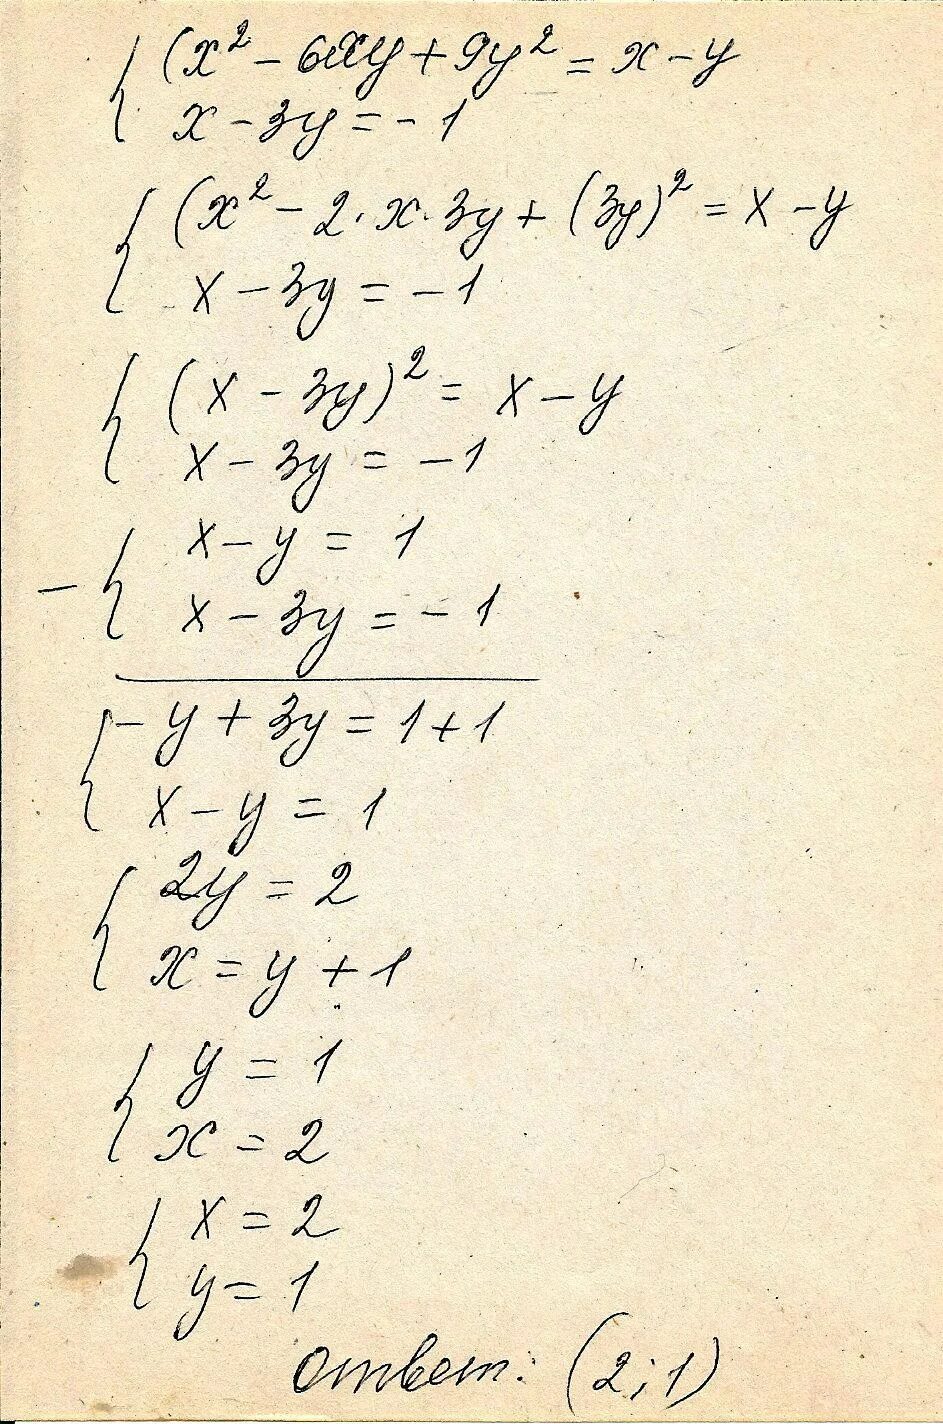 { (x² - 6xy + 9y² = x - y
x - 3y = -1
{ (x² - 2·x·3y + (3y)² = x - y
x - 3y = -1
{ (x - 3y)² = x - y
x - 3y = -1
- { x - y = 1
x - 3y = -1
{ - y + 3y = 1 + 1
x - y = 1
{ 2y = 2
x = y + 1
{ y = 1
x = 2
{ x = 2
y = 1
ответ: (2; 1)